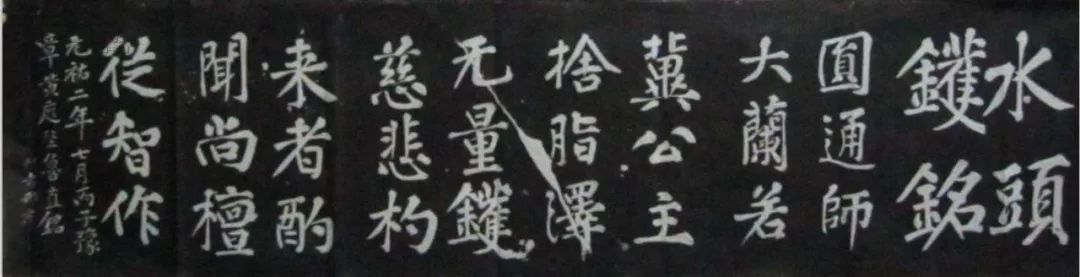 水頭
鑊銘
圓通師
大蘭若
冀公主
捨脂澤
无量鑊
慈悲杓
来者酌
聞尚檀
從智作
元祐二年七月丙子豫
章黃庭堅魯直銘